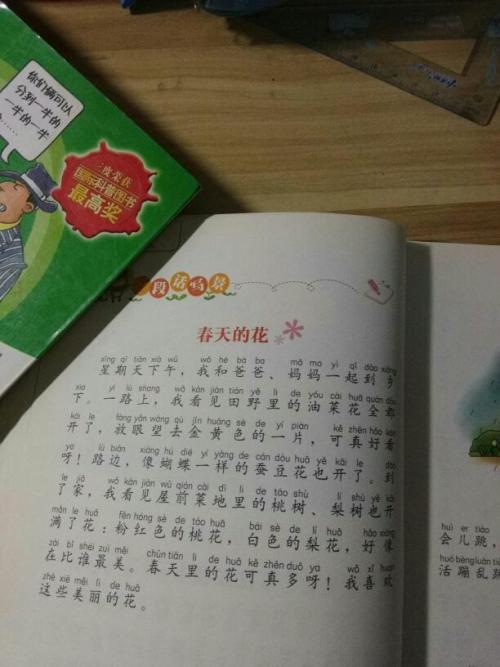 你们俩可以
分到一牛的
一牛的一牛
三度荣获
国际科普图书
最高奖
段话写景
春天的花
xīng qī tiān xià wǔ wǒ hé bà ba mā ma yì qǐ dào xiāng
星期天下午，我和爸爸、妈妈一起到乡
xia yí lù shang wǒ kàn jiàn tián yě li de yóu cài huā quán dōu
下。一路上，我看见田野里的油菜花全都
kāi le fàng yǎn wàng qù jīn huáng sè de yí piàn kě zhēn hǎo kàn
开了，放眼望去金黄色的一片，可真好看
ya lù biān xiàng hú dié yí yàng de cán dòu huā yě kāi le dào
呀！路边，像蝴蝶一样的蚕豆花也开了。到
le jiā wǒ kàn jiàn wū qián cài dì li de táo shù lí shù yě kāi
了家，我看见屋前菜地里的桃树、梨树也开
mǎn le huā fěn hóng sè de táo huā bái sè de lí huā hǎo xiàng
满了花：粉红色的桃花，白色的梨花，好像
zài bǐ shéi zuì měi chūn tiān li de huā kě zhēn duō ya wǒ xǐ huan
在比谁最美。春天里的花可真多呀！我喜欢
zhè xiē měi lì de huā
这些美丽的花。
huì ér tiào
会儿跳，
huó bèng luàn tiào
活蹦乱跳